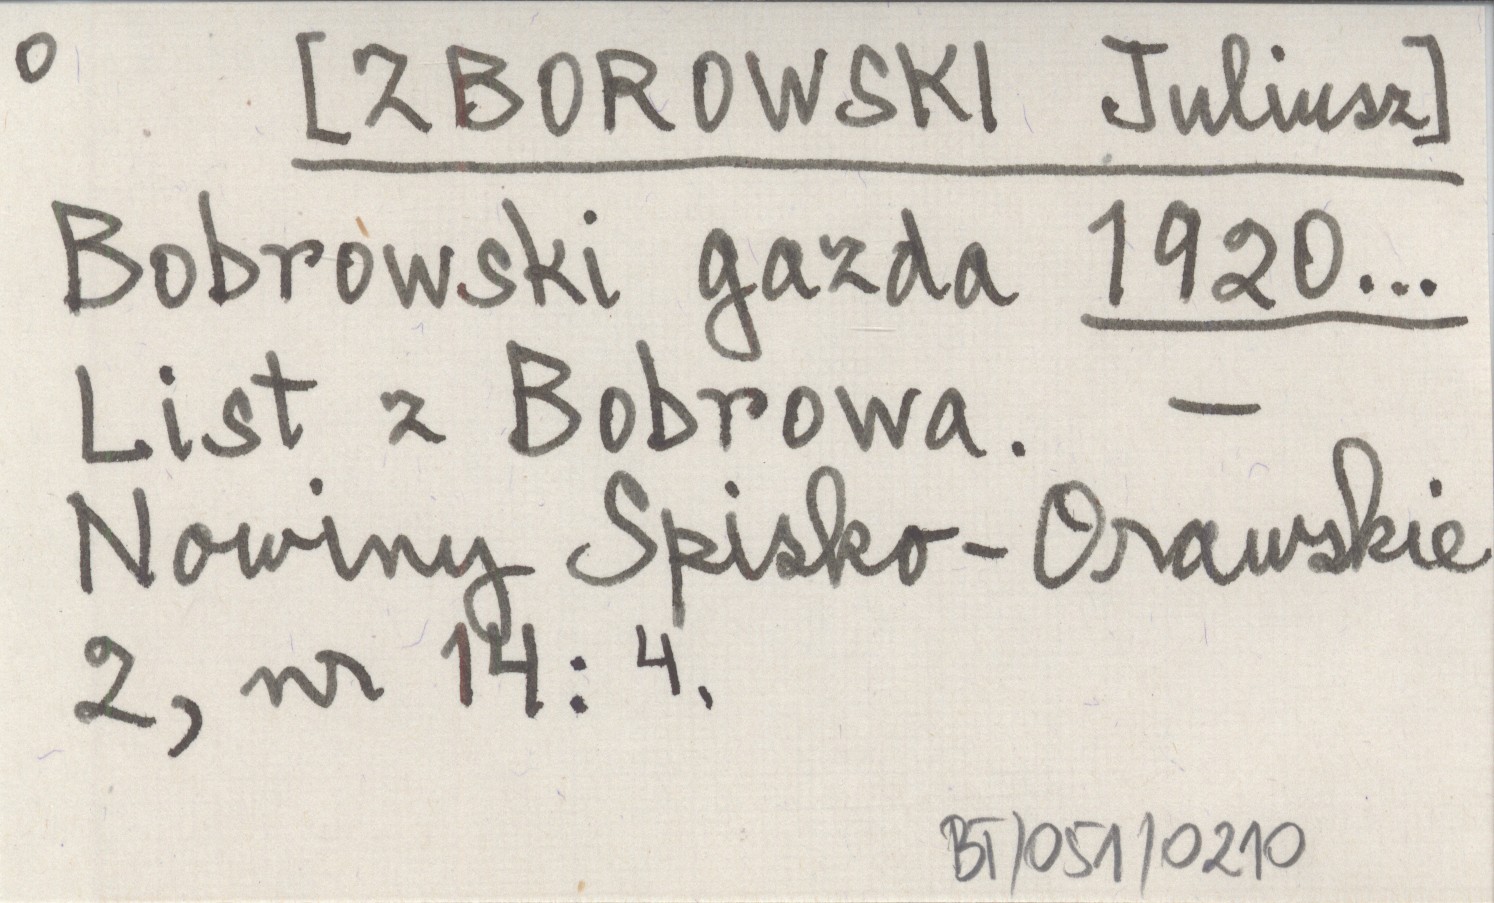 o [ZBOROWSKI Juliusz]
Bobrowski gazda 1920...
List z Bobrowa. –
Nowiny Spisko-Orawskie
2, nr 14: 4.
BT/051/0210